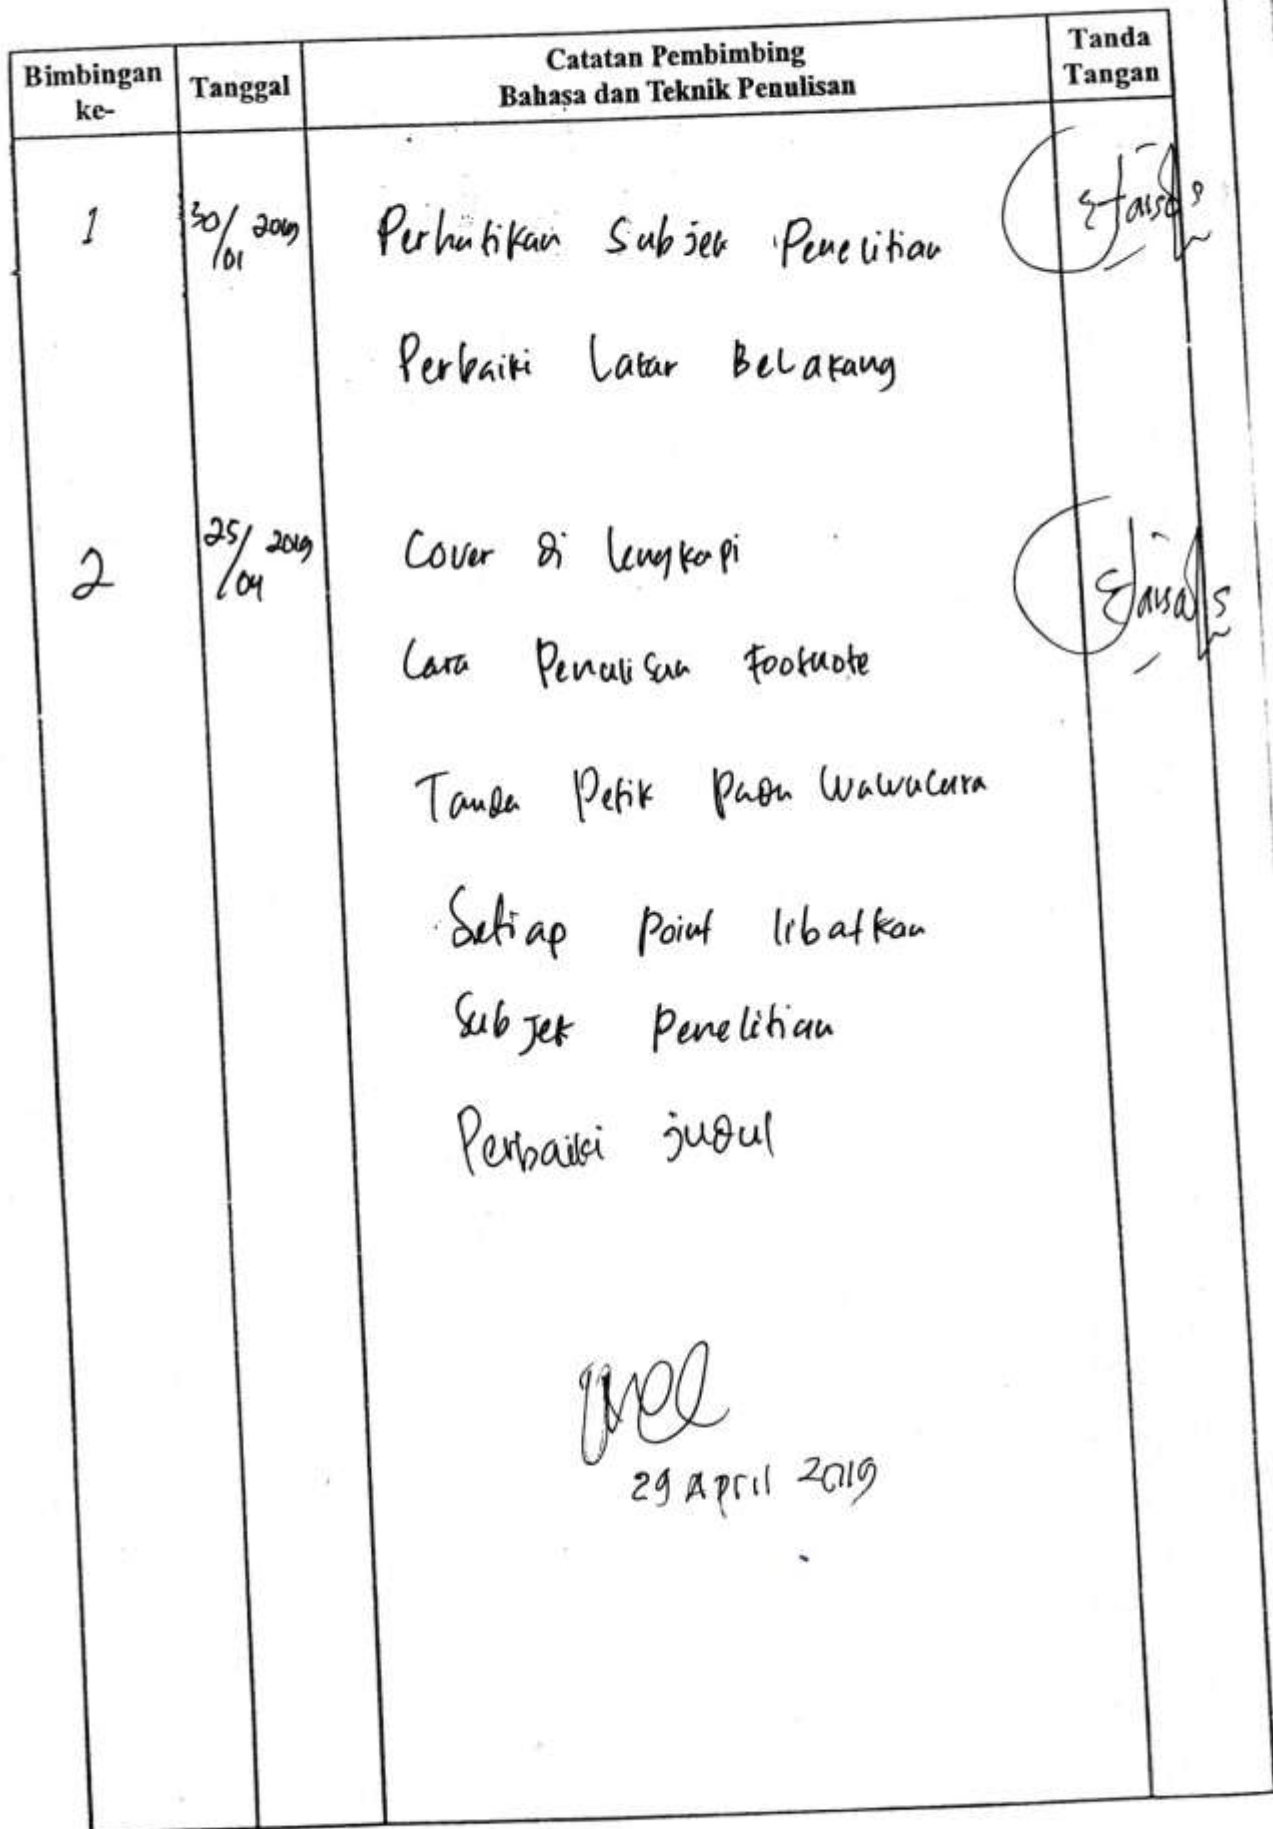 Bimbingan ke-
Tanggal
Catatan Pembimbing
Bahasa dan Teknik Penulisan
Tanda Tangan
1
30/01 2019
Perhatikan Subjek Penelitian
Perbaiki Latar Belakang
2
25/04 2019
Cover di lengkapi
Cara Penulisan Footnote
Tanda Petik pada Wawacara
Setiap Point libatkan
Subjek Penelitian
Perbaiki judul
29 April 2019